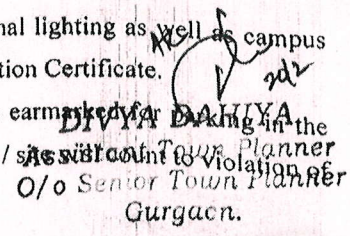 nal lighting as well as campus
tion Certificate.
earmarked for parking in the
DIVYA DAHIYA
/ site will count to violation of
Assistant Town Planner
O/o Senior Town Planner
Gurgaon.